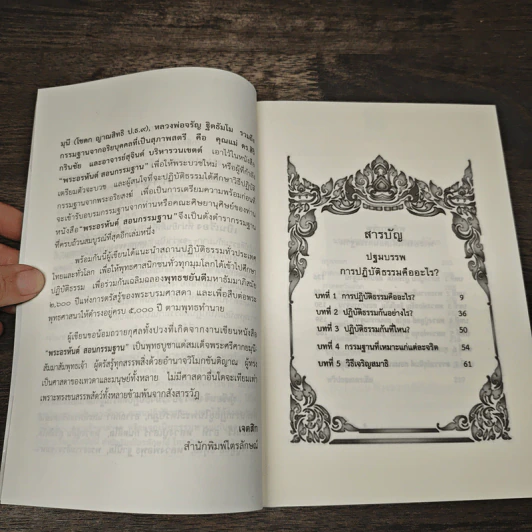 มุนี (โชดก ญาณสิทธิ ป.ธ.๙), หลวงพ่อจรัญ ฐิตธัมโม รวมถึง
กรรมฐานจากอริยบุคคลที่เป็นสุภาพสตรี คือ คุณแม่ ดร.สิริ
กรินชัย และอาจารย์สุจินต์ บริหารวนเขตต์ เอาไว้ในหนังสือ
"พระอรหันต์ สอนกรรมฐาน" เพื่อให้พระบวชใหม่ หรือผู้ที่กำลัง
เตรียมตัวจะบวช และผู้สนใจที่จะปฏิบัติธรรมได้ศึกษาวิธีปฏิบัติ
กรรมฐานจากพระอริยสงฆ์ เพื่อเป็นการเตรียมความพร้อมก่อนที่
จะเข้ารับอบรมกรรมฐานจากท่านหรือคณะศิษยานุศิษย์ของท่าน
หนังสือ "พระอรหันต์ สอนกรรมฐาน" จึงเป็นดั่งตำรากรรมฐาน
ที่ครบถ้วนสมบูรณ์ที่สุดอีกเล่มหนึ่ง
พร้อมกันนี้ผู้เขียนได้แนะนำสถานปฏิบัติธรรมทั่วประเทศ
ไทยและทั่วโลก เพื่อให้พุทธศาสนิกชนทั่วทุกมุมโลกได้เข้าไปศึกษา
ปฏิบัติธรรม เพื่อร่วมกันเฉลิมฉลองพุทธชยันตีมหาธัมมาภิสมัย
๒,๖๐๐ ปีแห่งการตรัสรู้ของพระบรมศาสดา และเพื่อสืบต่อพระ
พุทธศาสนาให้ดำรงอยู่ครบ ๕,๐๐๐ ปี ตามพุทธทำนาย
ผู้เขียนขอน้อมถวายกุศลทั้งปวงที่เกิดจากงานเขียนหนังสือ
"พระอรหันต์ สอนกรรมฐาน" เป็นพุทธบูชาแด่สมเด็จพระศรีศากยมุนี
สัมมาสัมพุทธเจ้า ผู้ตรัสรู้ทุกสรรพสิ่งด้วยอำนาจวิโมกขันติญาณ ผู้ทรง
เป็นศาสดาของเทวดาและมนุษย์ทั้งหลาย ไม่มีศาสดาอื่นใดจะเทียมเท่า
เพราะทรงขนสรรพสัตว์ทั้งหลายข้ามพ้นจากสังสารวัฏ
เจตสิก
สำนักพิมพ์ไตรลักษณ์
สารบัญ
ปฐมบรรพ
การปฏิบัติธรรมคืออะไร?
บทที่ 1 การปฏิบัติธรรมคืออะไร? 9
บทที่ 2 ปฏิบัติธรรมกันอย่างไร? 36
บทที่ 3 ปฏิบัติธรรมกันที่ไหน? 50
บทที่ 4 กรรมฐานที่เหมาะแก่แต่ละจริต 54
บทที่ 5 วิธีเจริญสมาธิ 61